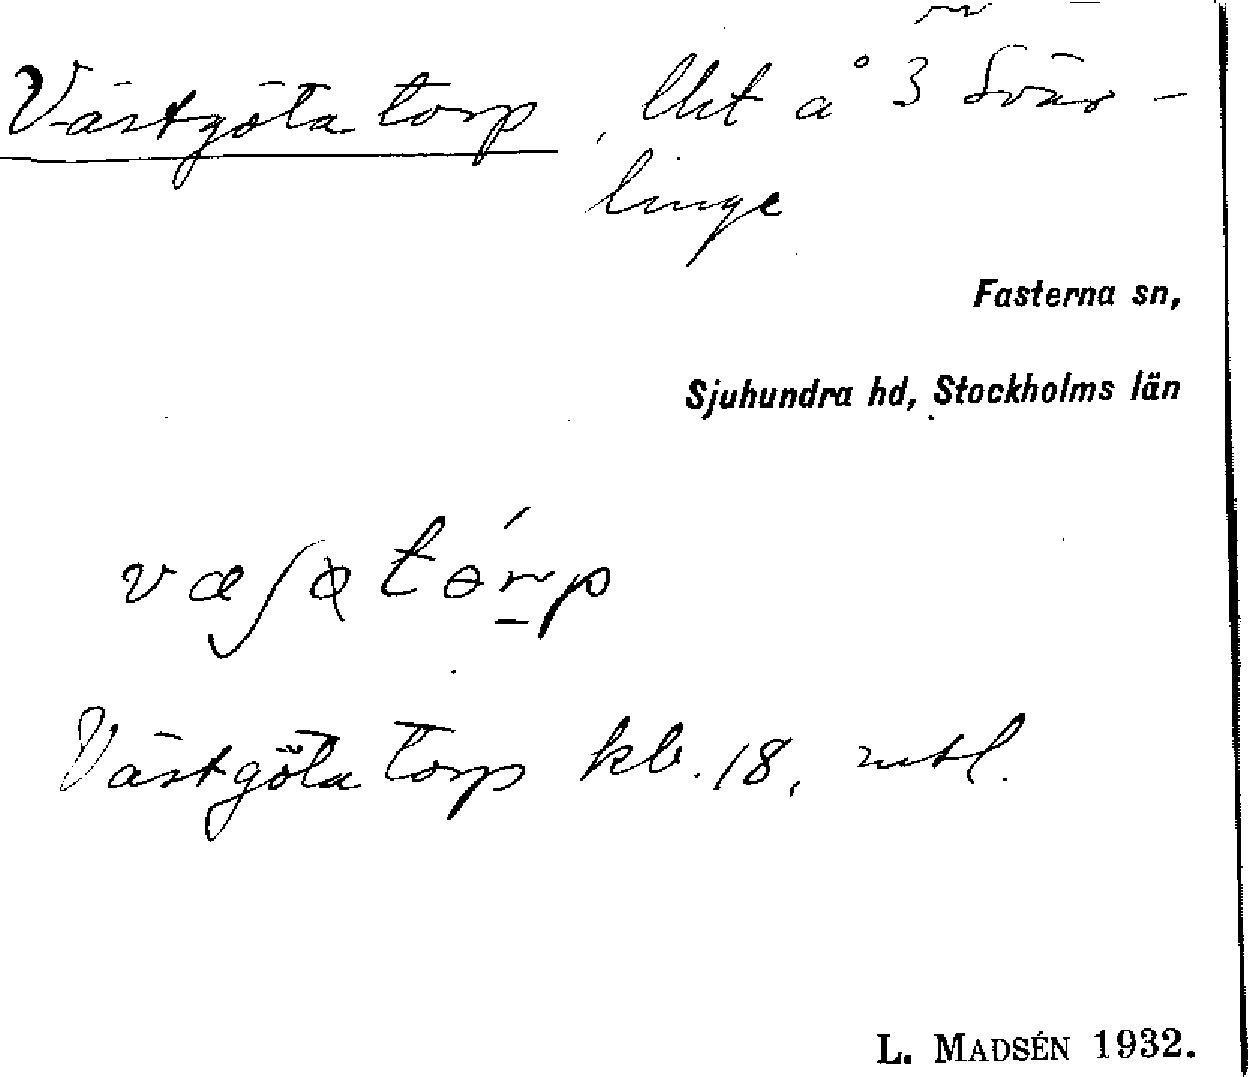 Västgötatorp, lht å 3 Svär-
linge
Fasterna sn,
Sjuhundra hd, Stockholms län
væʃatórp
Västgötatorp kb. 18, mtl.
L. MADSÉN 1932.